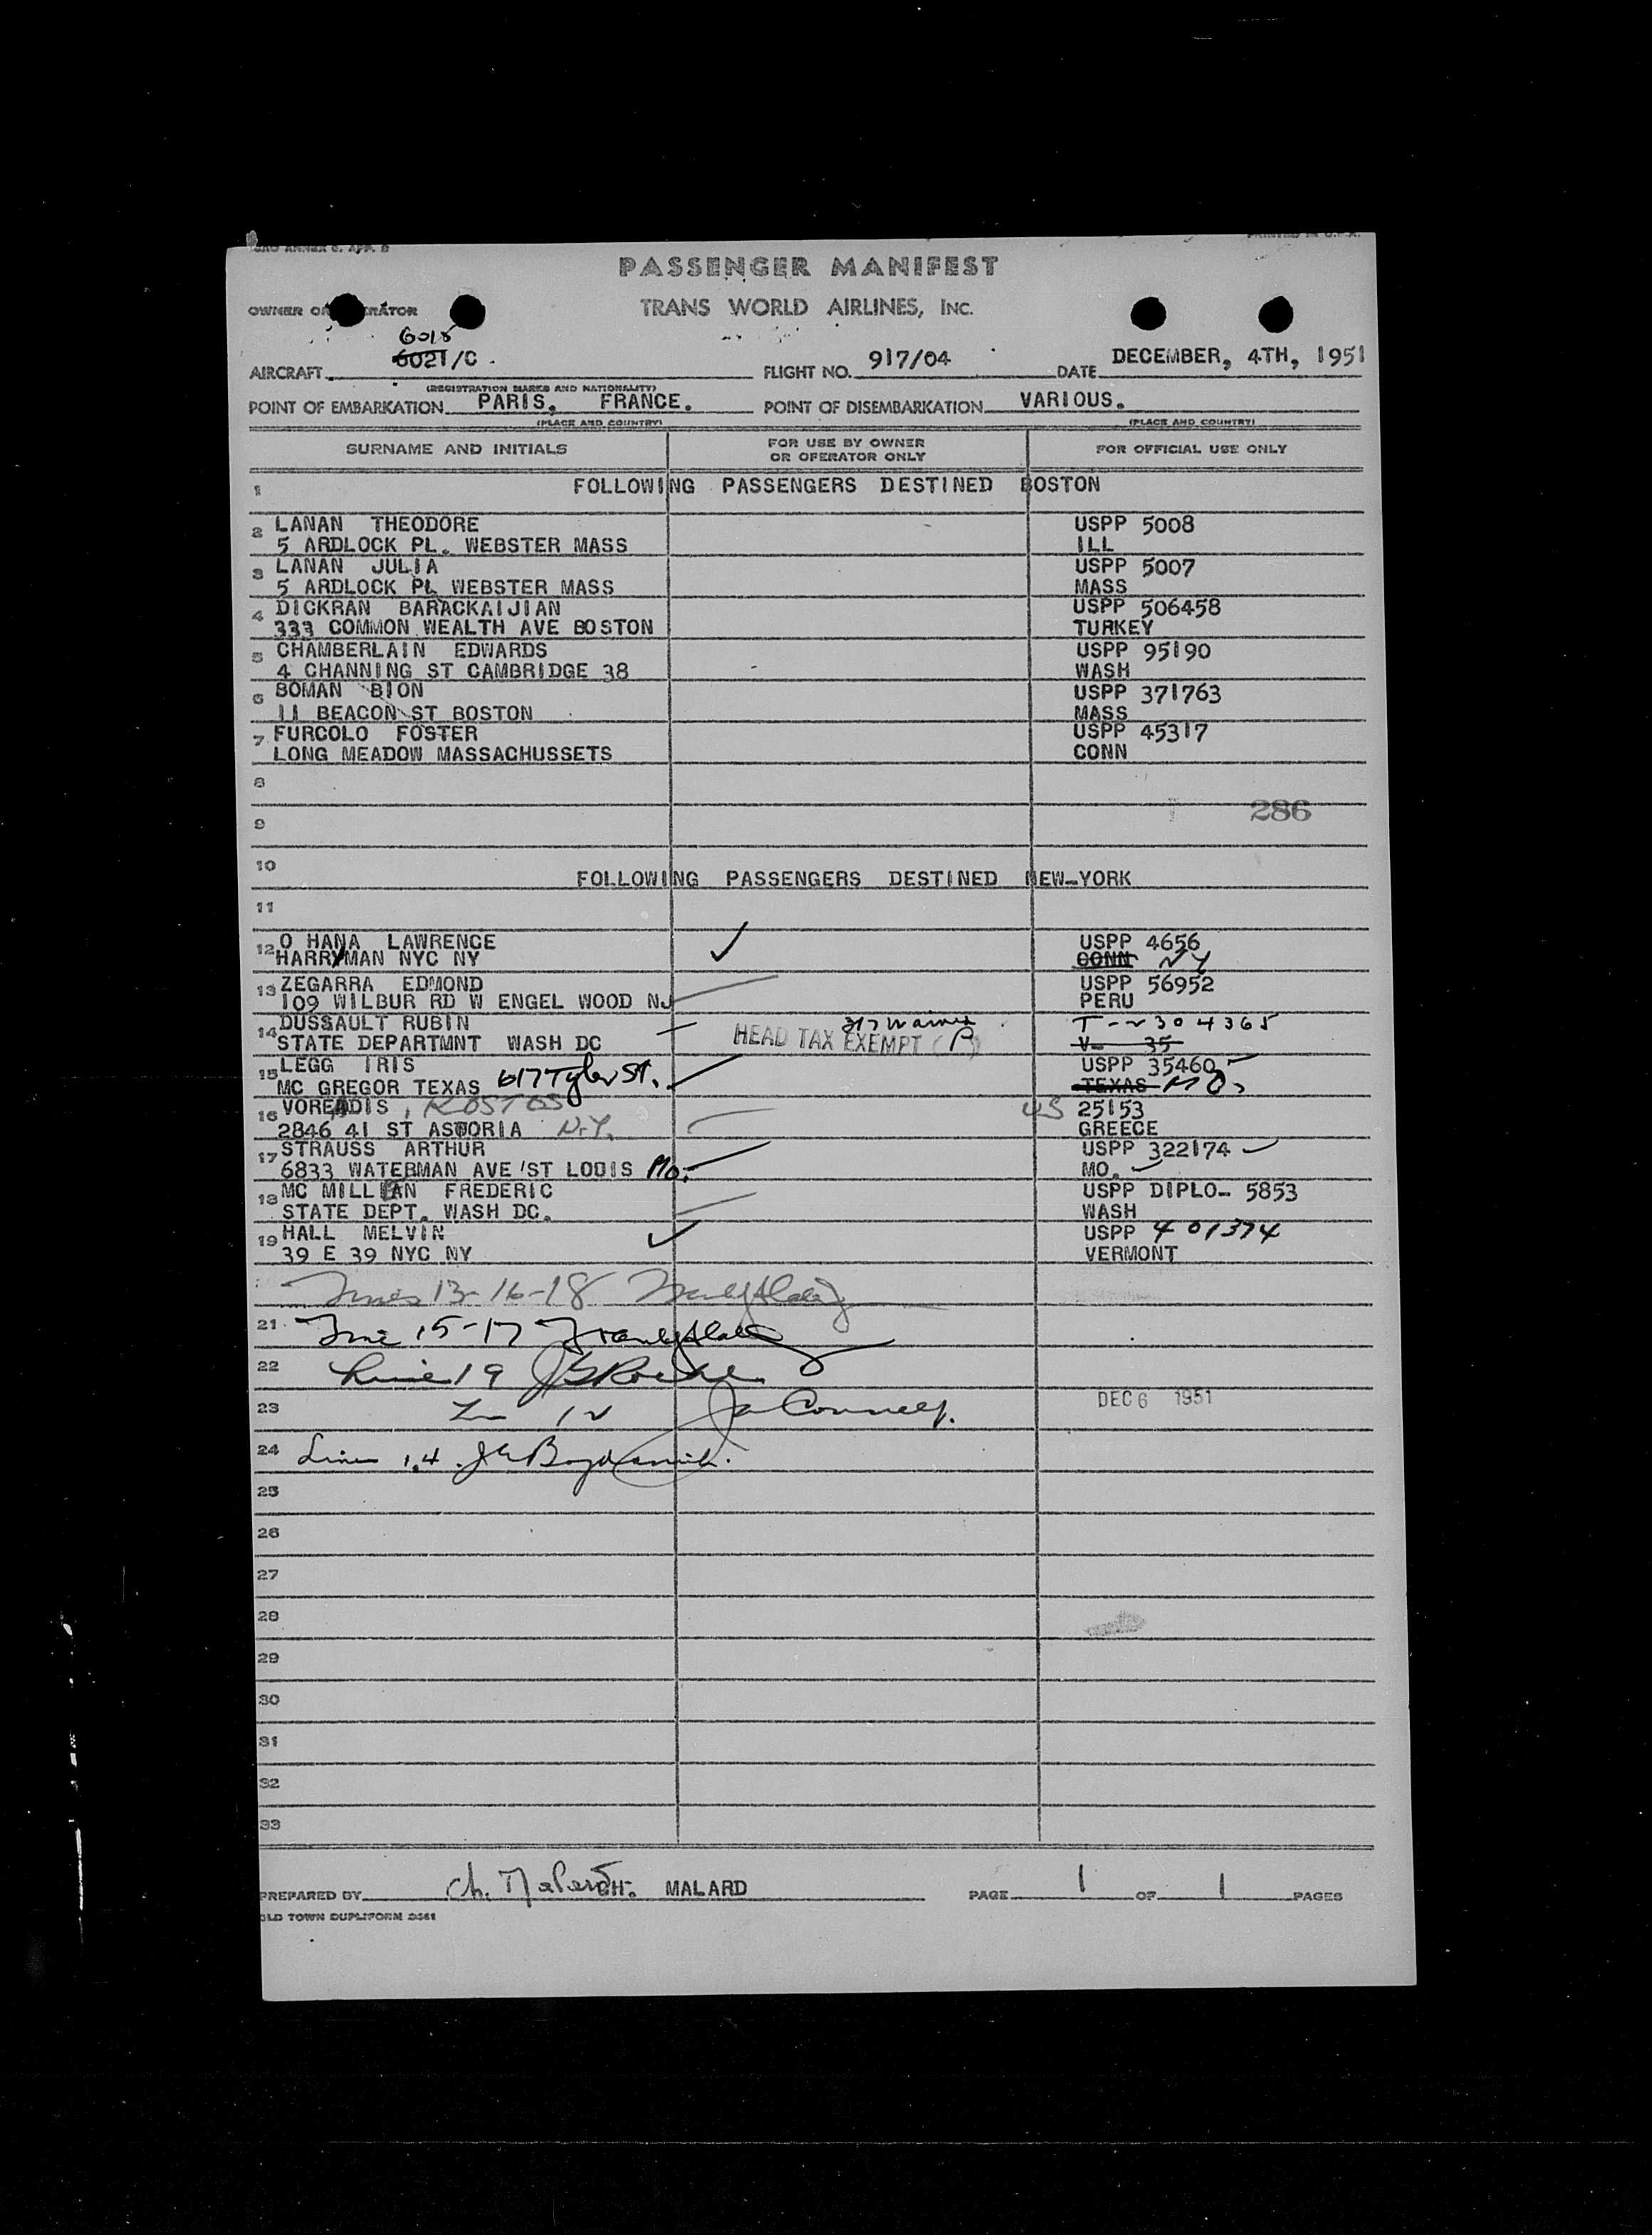 PASSENGER MANIFEST
OWNER OR OPERATOR
TRANS WORLD AIRLINES, INC.
6018
6021/C.
AIRCRAFT
FLIGHT NO. 917/04
DATE DECEMBER, 4TH, 1951
(REGISTRATION MARKS AND NATIONALITY)
POINT OF EMBARKATION PARIS, FRANCE.
POINT OF DISEMBARKATION VARIOUS.
(PLACE AND COUNTRY)
(PLACE AND COUNTRY)
SURNAME AND INITIALS
FOR USE BY OWNER
OR OPERATOR ONLY
FOR OFFICIAL USE ONLY
1 FOLLOWING PASSENGERS DESTINED BOSTON
2 LANAN THEODORE USPP 5008
5 ARDLOCK PL. WEBSTER MASS ILL
3 LANAN JULIA USPP 5007
5 ARDLOCK PL WEBSTER MASS MASS
4 DICKRAN BARACKAIJIAN USPP 506458
333 COMMON WEALTH AVE BOSTON TURKEY
5 CHAMBERLAIN EDWARDS USPP 95190
4 CHANNING ST CAMBRIDGE 38 WASH
6 BOMAN BION USPP 371763
11 BEACON ST BOSTON MASS
7 FURCOLO FOSTER USPP 45317
LONG MEADOW MASSACHUSSETS CONN
8
286
9
10
FOLLOWING PASSENGERS DESTINED NEW-YORK
11
12 O HANA LAWRENCE USPP 4656
HARRYMAN NYC NY CONN NY
13 ZEGARRA EDMOND USPP 56952
109 WILBUR RD W ENGEL WOOD NJ PERU
14 DUSSAULT RUBIN T-~304365
STATE DEPARTMNT WASH DC HEAD TAX EXEMPT V- 35
15 LEGG IRIS USPP 35460
MC GREGOR TEXAS 617 Tyler St. TEXAS MO.
16 VOREADIS, KOSTOS US 25153
2846 41 ST ASTORIA N.Y. GREECE
17 STRAUSS ARTHUR USPP 322174
6833 WATERMAN AVE ST LOUIS Mo. MO.
18 MC MILLEAN FREDERIC USPP DIPLO- 5853
STATE DEPT. WASH DC. WASH
19 HALL MELVIN USPP 401374
39 E 39 NYC NY VERMONT
Lines 13-16-18
21 Line 15-17
22 Line 19
23 DEC 6 1951
24 Line 14
25
26
27
28
29
30
31
32
33
PREPARED BY Ch. Malard CH. MALARD
PAGE 1 OF 1 PAGES
OLD TOWN DUPLIFORM